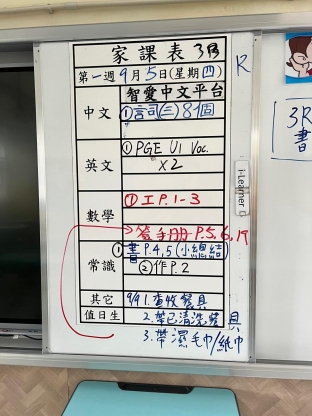 家課表 3R
第一週9月5日(星期四)
R
智愛中文平台
中文
①言司(三)8個
英文
①PGE U1 Voc.
x2
數學
①工P.1-3
簽手冊P.5,6,
常識
①書P.4,5(小總結)
②作P.2
其它
9/9 1.查收餐具
值日生
2.帶已清洗餐具
3.帶濕毛巾/紙巾
i-Learner
3R
書